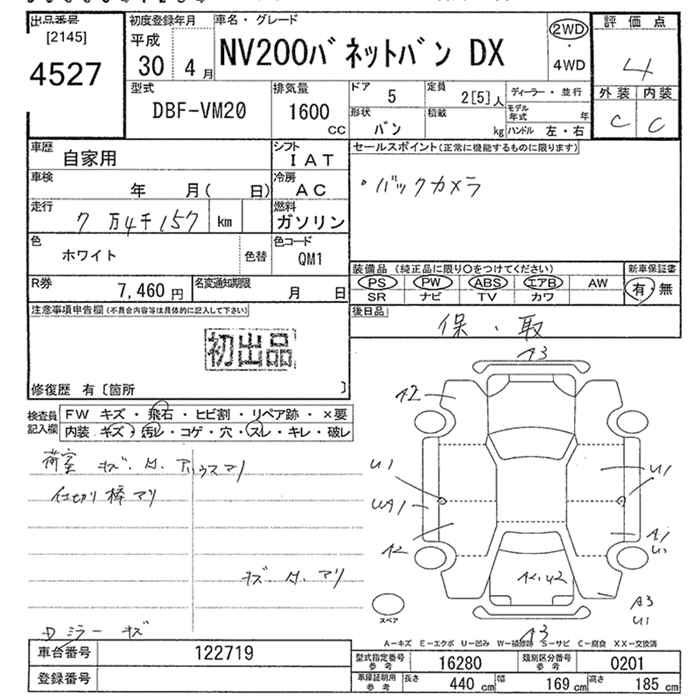 出品番号
[2145]
4527
初度登録年月
平成
30 4 月
車名・グレード
NV200バネットバン DX
2WD
・
4WD
評価点
4
外装 内装
C C
型式
DBF-VM20
排気量
1600
CC
ドア 5
定員 2[5]人
ディーラー・並行
形状 バン
積載 kg
モデル年式 年
ハンドル 左・右
車歴
自家用
シフト
IAT
車検
年 月( 日)
冷房
AC
走行
7万4千157 km
燃料
ガソリン
色
ホワイト
色替
色コード
QM1
R券
7,460 円
名変通知期限
月 日
セールスポイント(正常に機能するものに限ります)
・バックカメラ
装備品 (純正品に限り○をつけてください)
PS PW ABS エアB AW
SR ナビ TV カワ
新車保証書
有・無
後日品
保・取
注意事項申告欄(不具合内容等は具体的に記入して下さい)
初出品
修復歴 有〔箇所 〕
検査員
記入欄
FW キズ・飛石・ヒビ割・リペア跡・×要
内装 キズ・汚レ・コゲ・穴・スレ・キレ・破レ
荷室 キズ
仕切り棒アリ
Dミラーキズ
A3
A2
U1
U1
UA1
A2
A1
U1
A2.U2
A3
U1
A3
スペア
A-キズ E-エクボ U-凹み W-補修跡 S-サビ C-腐食 XX-交換済
車台番号
122719
登録番号
型式指定番号
参考
16280
類別区分番号
参考
0201
車庫証明用
参考
長さ 440 cm 幅 169 cm 高さ 185 cm